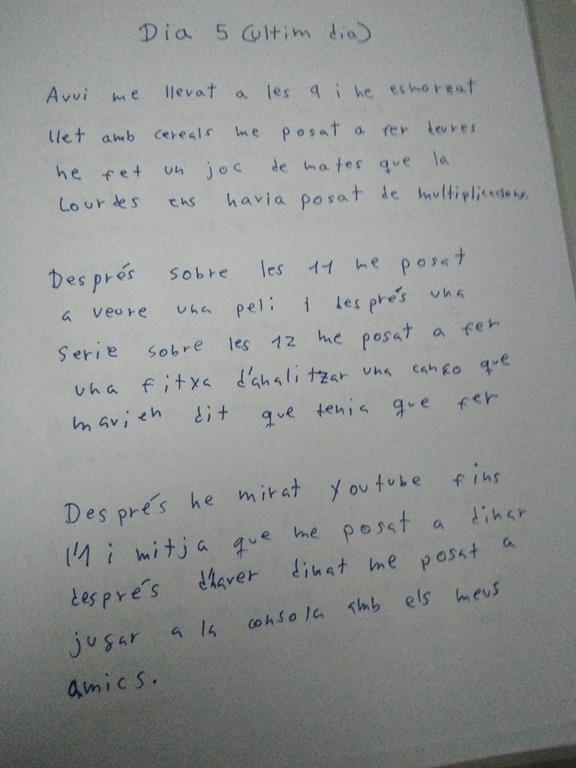 Dia 5 (ultim dia)
Avui me llevat a les 9 i he esmorzat
llet amb cereals me posat a fer deures
he fet un joc de mates que la
Lourdes ens havia posat de multiplicacions.
Després sobre les 11 me posat
a veure una peli i després una
serie sobre les 12 me posat a fer
una fitxa d'analitzar una canço que
mavien dit que tenia que fer
Després he mirat Youtube fins
l'1 i mitja que me posat a dinar
després d'haver dinat me posat a
jugar a la consola amb els meus
amics.